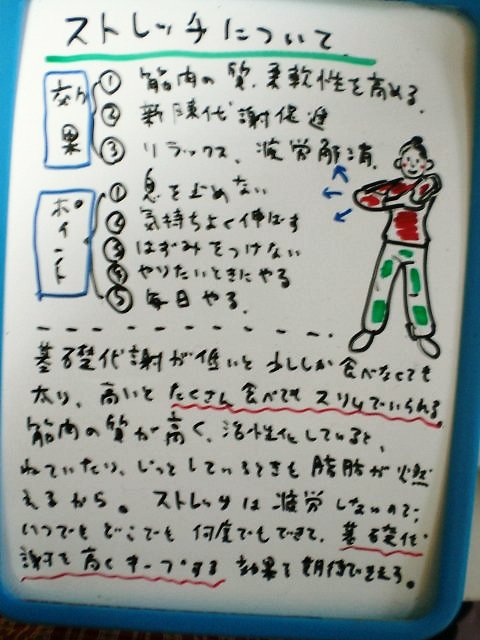 ストレッチについて
効果
① 筋肉の質、柔軟性を高める。
② 新陳代謝促進
③ リラックス、疲労解消
ポイント
① 息を止めない
② 気持ちよく伸ばす
③ はずみをつけない
④ やりたいときにやる
⑤ 毎日やる。
基礎代謝が低いと 少ししか食べなくても
太り、高いと たくさん食べても スリムでいられる
筋肉の質が高く、活性化していると、
ねていたり、じっとしているときも 脂肪が燃
えるから。 ストレッチは疲労しないので、
いつでも どこでも 何度でもできて、基礎代
謝を高くキープする 効果も期待できる。